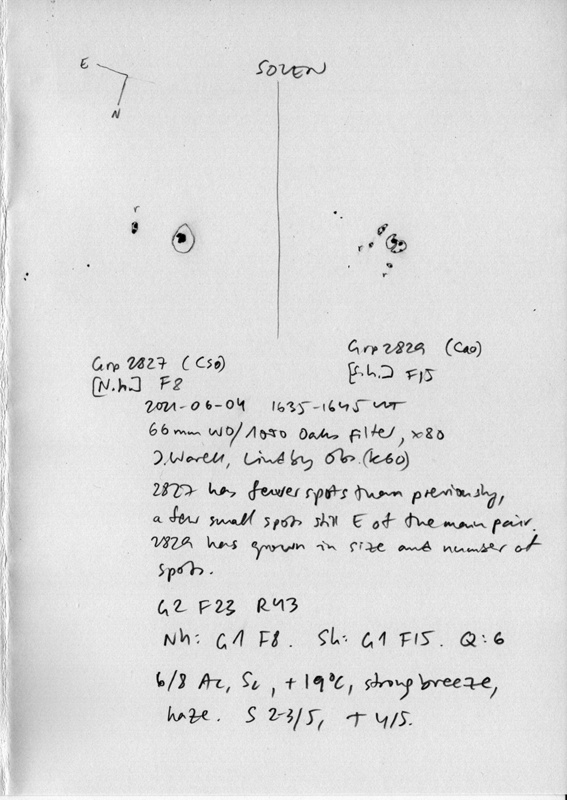 E
SOLEN
N
r
r
r
Grp 2827 (Cso)
[N.h.] F8
Grp 2829 (Cao)
[S.h.] F15
2021-06-04 1635-1645 UT
66mm WO/1050 Oahs Filter, x80
J. Warell, Lindby Obs. (K60)
2827 has fewer spots than previously,
a few small spots still E of the main pair.
2829 has grown in size and number of
spots.
G2 F23 R43
Nh: G1 F8. Sh: G1 F15. Q:6
6/8 Ac, Sc, +19°C, strong breeze,
haze. S 2-3/5, T 4/5.